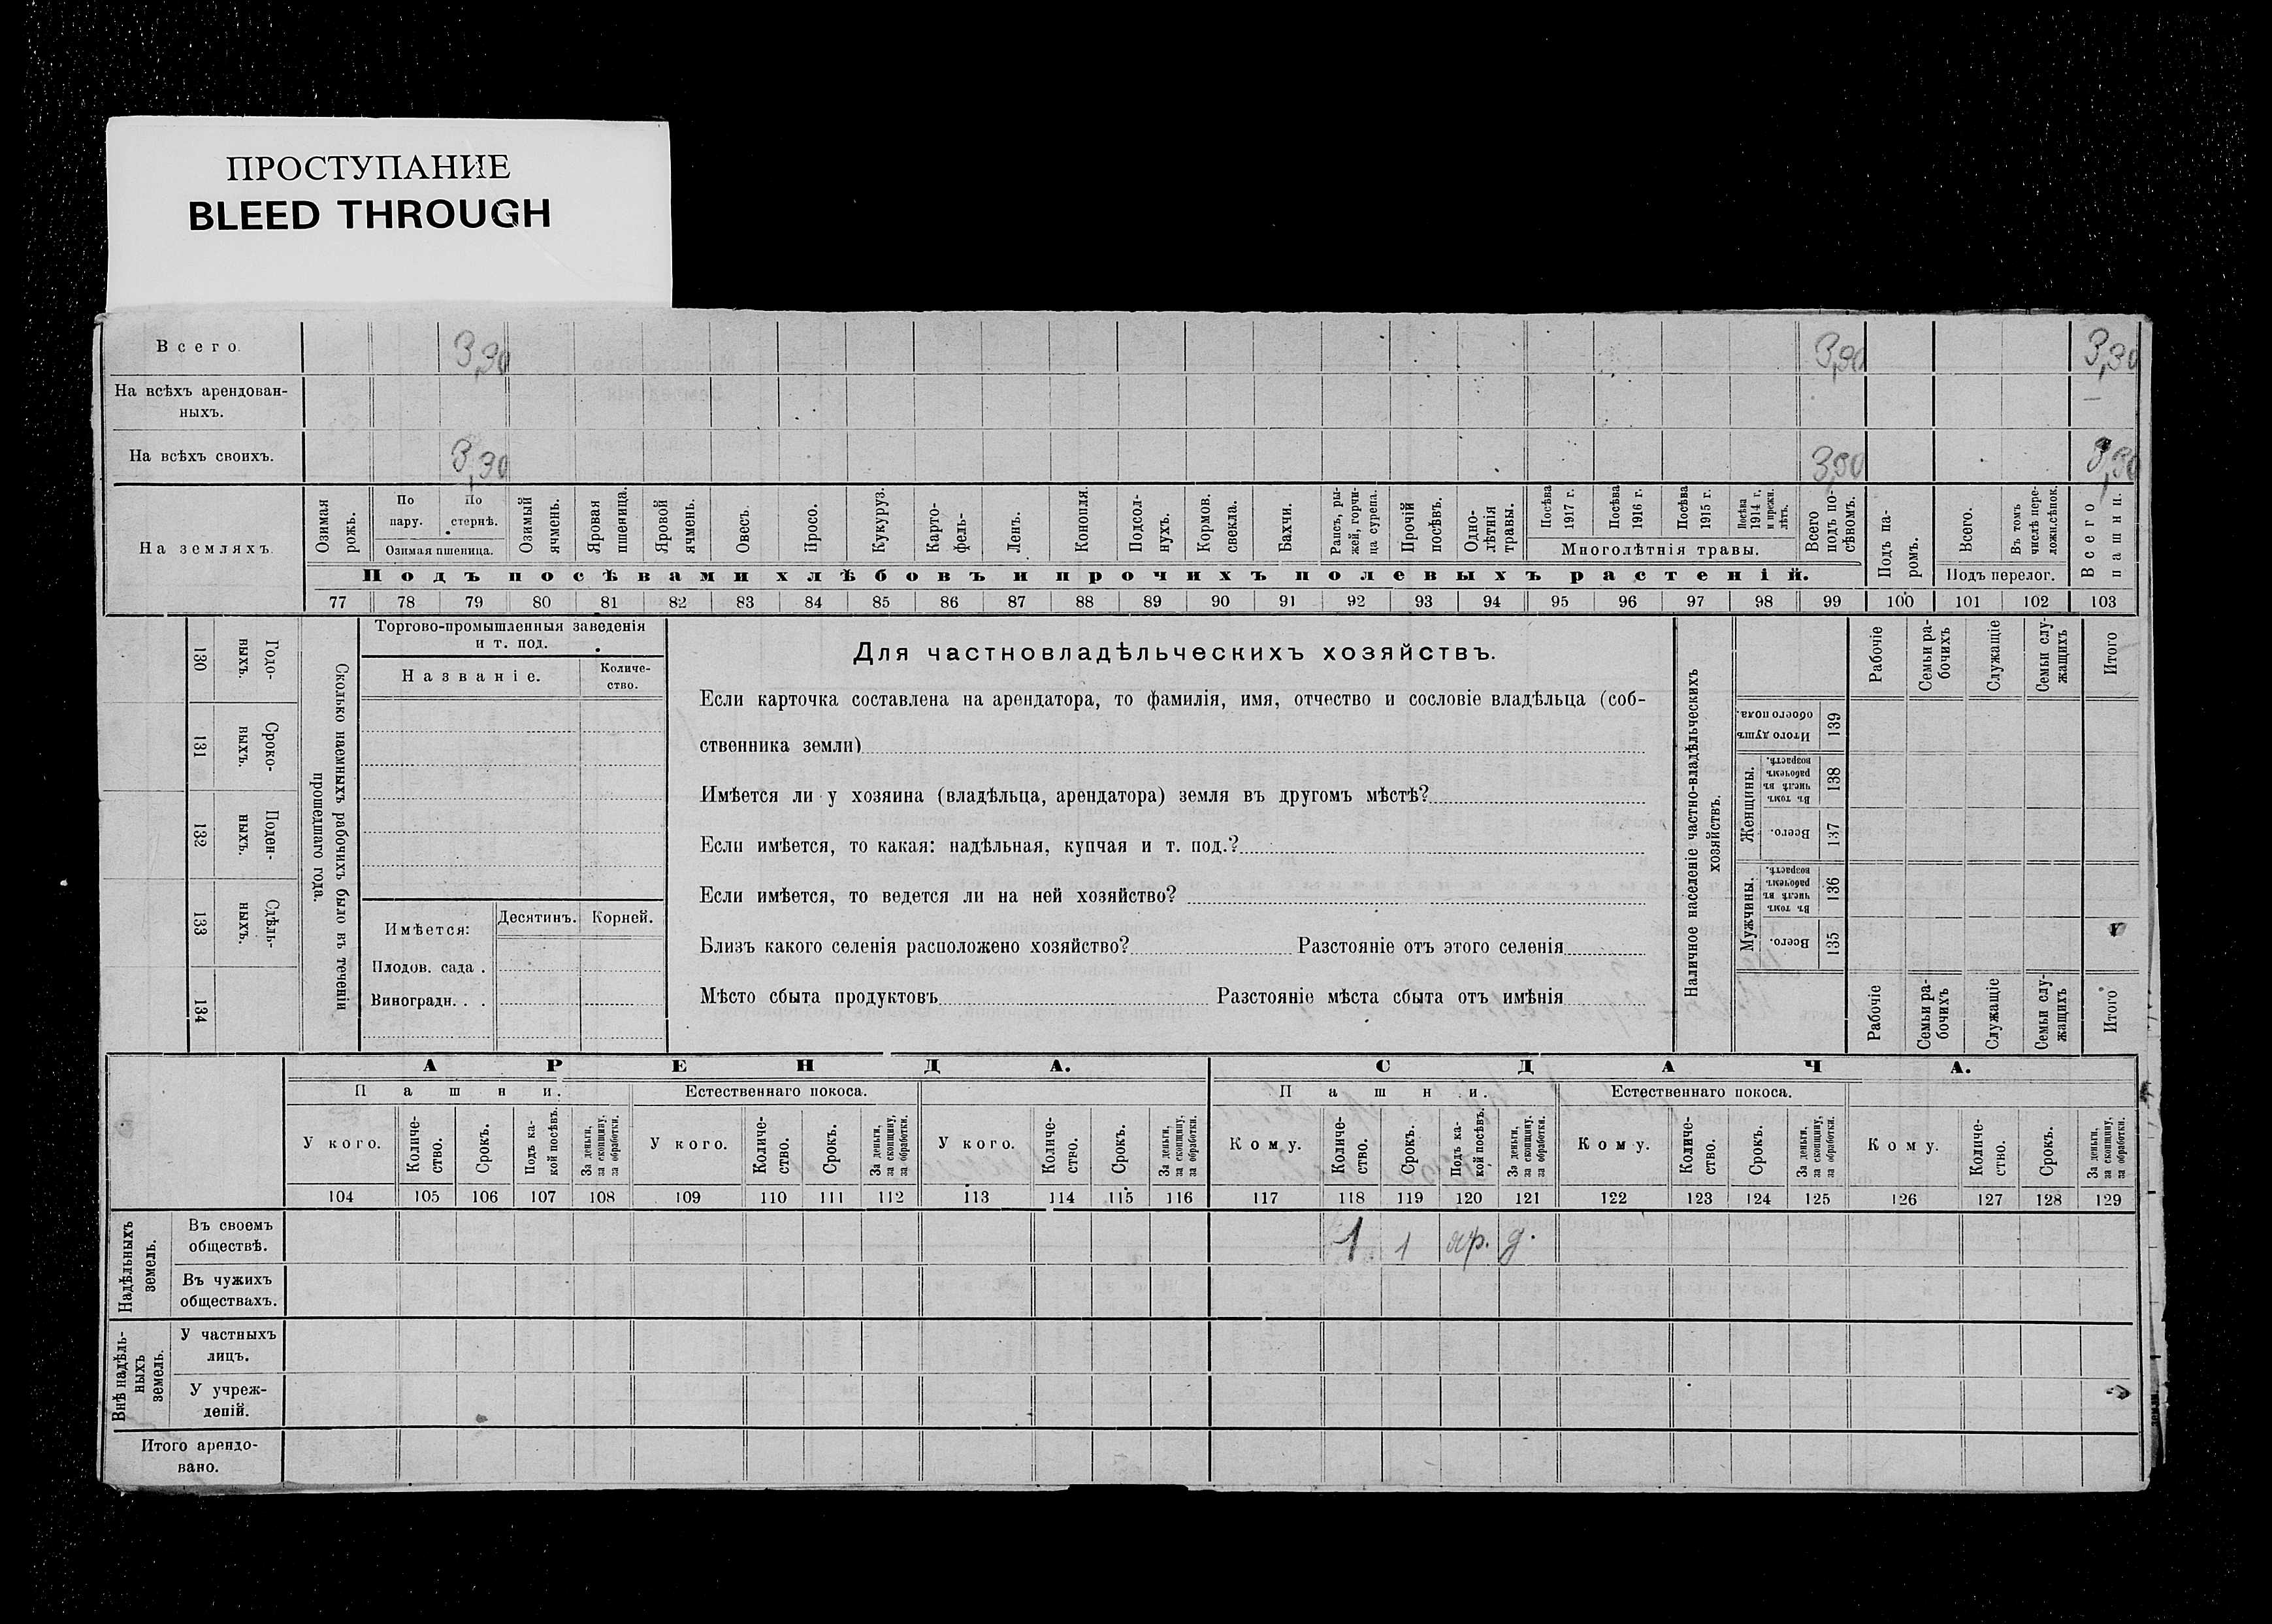 ПРОСТУПАНИЕ
BLEED THROUGH
Всего. 3,30 3,30 3,30
На всѣхъ арендован-
ныхъ. —
На всѣхъ своихъ. 3,30 3,30 3,30
На земляхъ.
Озимая рожь.
По пару.
По стернѣ.
Озимая пшеница.
Озимый ячмень.
Яровая пшеница.
Яровой ячмень.
Овесъ.
Просо.
Кукуруз.
Карто-
фель-
Ленъ.
Конопля.
Подсол-
нухъ.
Кормов.
свекла.
Бахчи.
Рапсъ, ры-
жей, горчи-
ца сурепа.
Прочій
посѣвъ.
Одно-
лѣтнія
травы.
Посѣва
1917 г.
Посѣва
1916 г.
Посѣва
1915 г.
Посѣва
1914 г,
и прежн.
лѣтъ.
Многолѣтнія травы.
Всего
подъ по-
сѣвомъ.
Подъ па-
ромъ.
Всего.
Въ томъ
числѣ пере-
ложн.сѣнок.
Подъ перелог.
Всего
пашни.
Подъ посѣвами хлѣбовъ и прочихъ полевыхъ растеній.
77 78 79 80 81 82 83 84 85 86 87 88 89 90 91 92 93 94 95 96 97 98 99 100 101 102 103
130
Годо-
ныхъ.
131
Сроко-
ныхъ.
132
Поден-
ныхъ.
133
Сдѣль-
ныхъ.
134
Сколько наемныхъ рабочихъ было въ теченіи
прошедшаго года.
Торгово-промышленныя заведенія
и т. под.
Названіе.
Количе-
ство.
Имѣется:
Десятинъ. Корней.
Плодов. сада .
Виноградн. . .
Для частновладѣльческихъ хозяйствъ.
Если карточка составлена на арендатора, то фамилія, имя, отчество и сословіе владѣльца (соб-
ственника земли)
Имѣется ли у хозяина (владѣльца, арендатора) земля въ другомъ мѣстѣ?
Если имѣется, то какая: надѣльная, купчая и т. под.?
Если имѣется, то ведется ли на ней хозяйство?
Близъ какого селенія расположено хозяйство? Разстояніе отъ этого селенія
Мѣсто сбыта продуктовъ Разстояніе мѣста сбыта отъ имѣнія
Наличное населеніе частно-владѣльческихъ
хозяйствъ.
Рабочіе
Семьи ра-
бочихъ
Служащіе
Семьи слу-
жащихъ
Итого
Итого душъ
обоего пола.
139
Женщины.
Въ томъ
числѣ въ
рабочемъ
возрастѣ.
138
Всего.
137
Мужчины.
Въ томъ
числѣ въ
рабочемъ
возрастѣ.
136
Всего.
135
Рабочіе
Семьи ра-
бочихъ
Служащіе
Семьи слу-
жащихъ
Итого
АРЕНДА. СДАЧА.
Пашни. Естественнаго покоса. Пашни. Естественнаго покоса.
У кого.
Количе-
ство.
Срокъ.
Подъ ка-
кой посѣвъ.
За деньги,
за скопщину,
за обработки.
У кого.
Количе-
ство.
Срокъ.
За деньги,
за скопщину,
за обработки.
У кого.
Количе-
ство.
Срокъ.
За деньги,
за скопщину,
за обработки.
Кому.
Количе-
ство.
Срокъ.
Подъ ка-
кой посѣвъ.
За деньги,
за скопщину.
за обработки.
Кому.
Количе-
ство.
Срокъ.
За деньги,
за скопщину,
за обработки.
Кому.
Количе-
ство.
Срокъ.
За деньги,
за скопщину,
за обработки.
104 105 106 107 108 109 110 111 112 113 114 115 116 117 118 119 120 121 122 123 124 125 126 127 128 129
Надѣльныхъ
земель.
Въ своемъ
обществѣ.
1 1 яр. д.
Въ чужихъ
обществахъ.
Внѣ надѣль-
ныхъ
земель.
У частныхъ
лицъ.
У учреж-
деній.
Итого арендо-
вано.